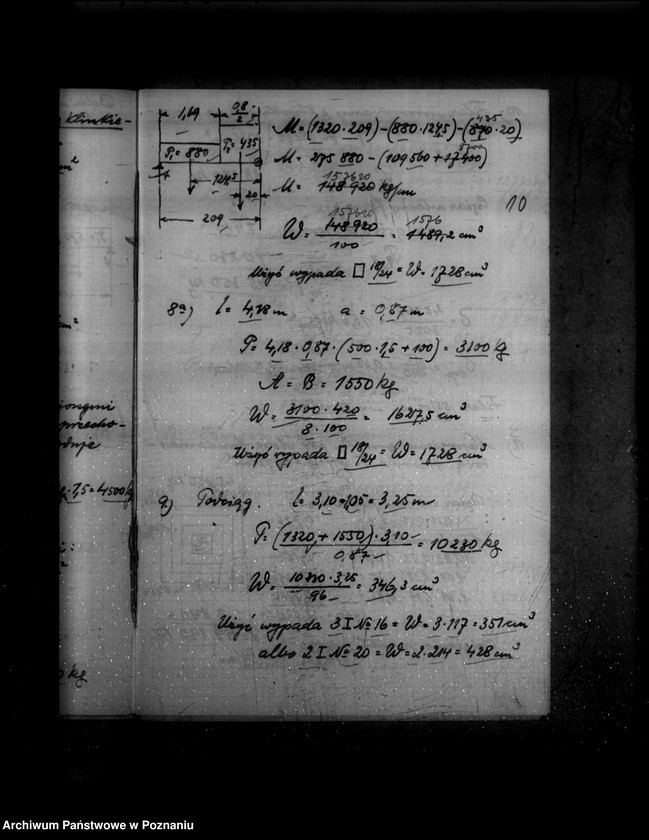 klinkie-
1,19
0,8
2
P₁ = 880
P₂ = 435
A
127,5
20
209
435
M = (1320 · 209) - (880 · 127,5) - (870 · 20)
8700
M = 275 880 - (109 560 + 17 400)
157620
M = 148 920 kg/cm
10
157620
1576
W = 148 920 / 100 = 1489,2 cm³
Użyć wypada □ 18/24 = W = 1728 cm³
8a) l = 4,18 m a = 0,87 m
P = 4,18 · 0,87 · (500 · 1,5 + 100) = 3100 kg
A = B = 1550 kg
W = 3100 · 420 / 8 · 100 = 1627,5 cm³
Użyć wypada □ 18/24 = W = 1728 cm³
przecho-
· 7,5 = 4500 kg
9) Podciąg. l = 3,10 · 1,05 = 3,25 m
P = (1320 + 1550) · 3,10 / 0,87 = 10230 kg
W = 10230 · 3,25 / 96 = 346,3 cm³
Użyć wypada 3 I № 16 = W = 3 · 117 = 351 cm³
albo 2 I № 20 = W = 2 · 214 = 428 cm³
kg
Archiwum Państwowe w Poznaniu